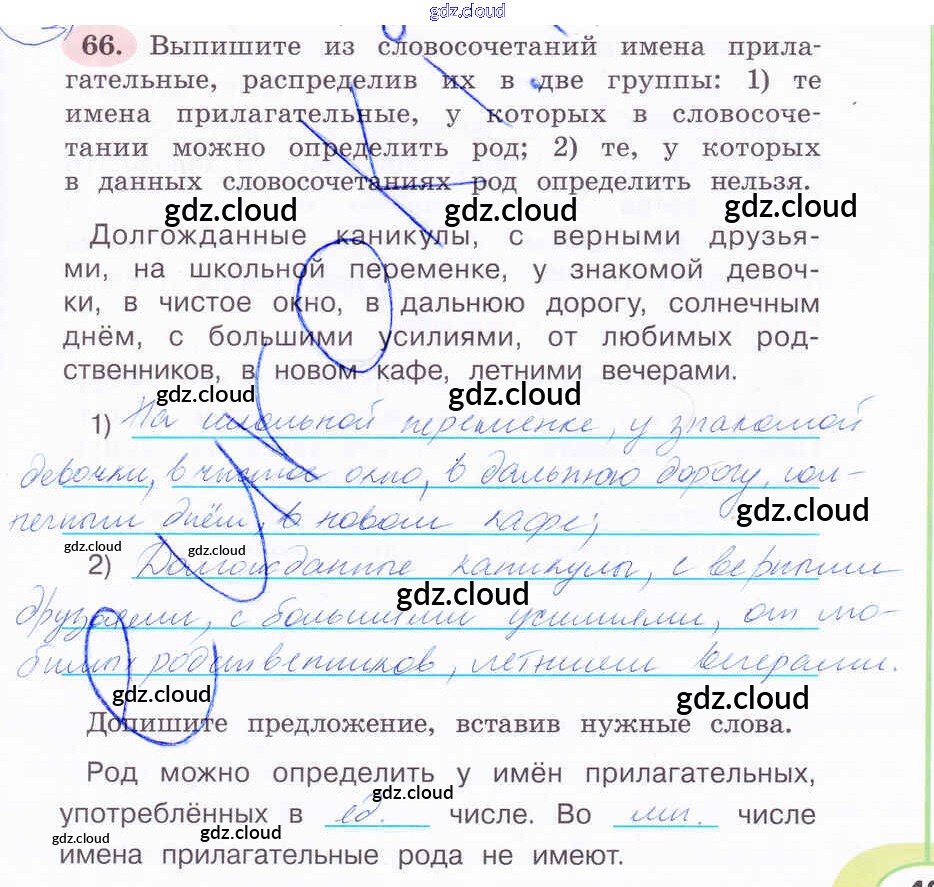 gdz.cloud
66. Выпишите из словосочетаний имена прила-
гательные, распределив их в две группы: 1) те
имена прилагательные, у которых в словосоче-
тании можно определить род; 2) те, у которых
в данных словосочетаниях род определить нельзя.
gdz.cloud gdz.cloud gdz.cloud
Долгожданные каникулы, с верными друзья-
ми, на школьной переменке, у знакомой девоч-
ки, в чистое окно, в дальнюю дорогу, солнечным
днём, с большими усилиями, от любимых род-
ственников, в новом кафе, летними вечерами.
gdz.cloud gdz.cloud
1) На школьной переменке, у знакомой
gdz.cloud
девочки, в чистое окно, в дальнюю дорогу, сол-
нечным днём, в новом кафе;
gdz.cloud
gdz.cloud gdz.cloud
2) Долгожданные каникулы, с верными
gdz.cloud
друзьями, с большими усилиями, от лю-
бимых родственников, летними вечерами.
gdz.cloud gdz.cloud
Допишите предложение, вставив нужные слова.
Род можно определить у имён прилагательных,
gdz.cloud
употреблённых в ед. числе. Во мн. числе
gdz.cloud gdz.cloud
имена прилагательные рода не имеют.